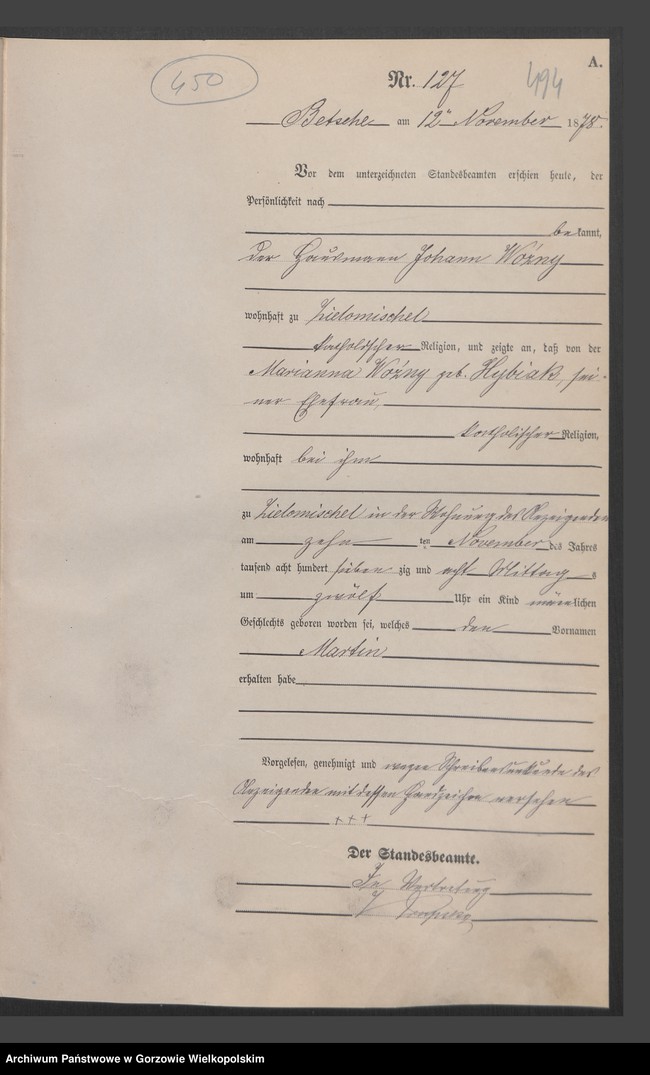 A.
450
Nr. 127
494
Betsche am 12ten November 1878.
Vor dem unterzeichneten Standesbeamten erschien heute, der
Persönlichkeit nach
bekannt,
der Hausmann Johann Woźny
wohnhaft zu Zielomischel
katholischer Religion, und zeigte an, daß von der
Marianna Woźny geb. Hybiak, sei-
ner Ehefrau,
katholischer Religion,
wohnhaft bei ihm
zu Zielomischel in der Wohnung des Anzeigenden
am zehn ten November des Jahres
tausend acht hundert sieben zig und acht Mittag s
um zwölf Uhr ein Kind männlichen
Geschlechts geboren worden sei, welches den Vornamen
Martin
erhalten habe
Vorgelesen, genehmigt und wegen Schreibensunkunde des
Anzeigenden mit dessen Handzeichen versehen
+++
Der Standesbeamte.
In Vertretung
Archiwum Państwowe w Gorzowie Wielkopolskim